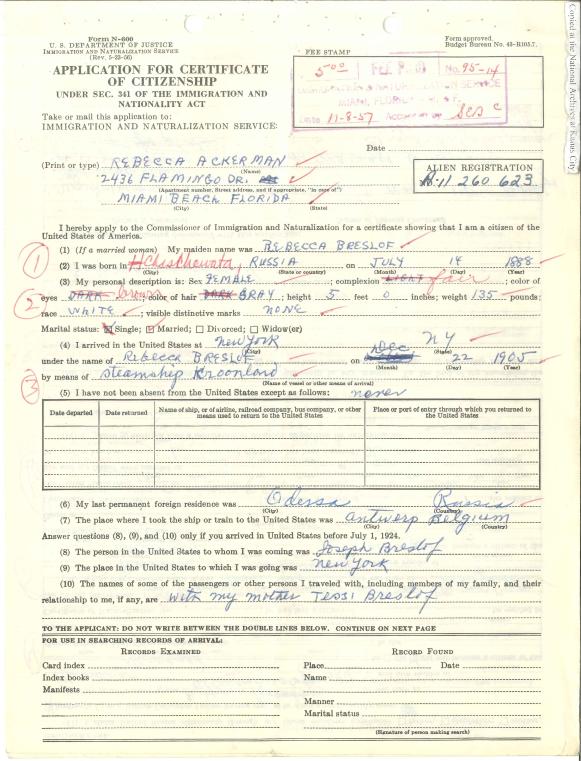 Form N-600
U. S. DEPARTMENT OF JUSTICE
IMMIGRATION AND NATURALIZATION SERVICE
(Rev. 5-23-56)
Form approved.
Budget Bureau No. 43-R105.7.
Copied at the National Archives at Kansas City
APPLICATION FOR CERTIFICATE
OF CITIZENSHIP
UNDER SEC. 341 OF THE IMMIGRATION AND
NATIONALITY ACT
Take or mail this application to:
IMMIGRATION AND NATURALIZATION SERVICE:
FEE STAMP
5.00 No. 95-14
IMMIGRATION & NATURALIZATION SERVICE
MIAMI, FLORIDA
Date 11-8-57
Date
(Print or type) REBECCA ACKERMAN
(Name)
2436 FLAMINGO DR.
(Apartment number, Street address, and if appropriate, "in care of")
MIAMI BEACH FLORIDA
(City) (State)
ALIEN REGISTRATION
A-11 260 623
I hereby apply to the Commissioner of Immigration and Naturalization for a certificate showing that I am a citizen of the
United States of America.
1
(1) (If a married woman) My maiden name was REBECCA BRESLOF
(2) I was born in RUSSIA on JULY 14 1888
(City) (State or country) (Month) (Day) (Year)
(3) My personal description is: Sex FEMALE; complexion LIGHT fair; color of
2
eyes DARK brown; color of hair DARK GRAY; height 5 feet 0 inches; weight 135 pounds;
race WHITE; visible distinctive marks NONE
Marital status: Single; Married; Divorced; Widow(er)
(4) I arrived in the United States at New York NY
(City) (State)
under the name of Rebecca BRESLOF on Dec 22 1905
(Month) (Day) (Year)
3
by means of Steamship Kroonland
(Name of vessel or other means of arrival)
(5) I have not been absent from the United States except as follows: never
Date departed Date returned Name of ship, or of airline, railroad company, bus company, or other means used to return to the United States Place or port of entry through which you returned to the United States
(6) My last permanent foreign residence was Odessa Russia
(City) (Country)
(7) The place where I took the ship or train to the United States was Antwerp Belgium
(City) (Country)
Answer questions (8), (9), and (10) only if you arrived in United States before July 1, 1924.
(8) The person in the United States to whom I was coming was Joseph Breslof
(9) The place in the United States to which I was going was New York
(10) The names of some of the passengers or other persons I traveled with, including members of my family, and their
relationship to me, if any, are with my mother TESSI Breslof
TO THE APPLICANT: DO NOT WRITE BETWEEN THE DOUBLE LINES BELOW. CONTINUE ON NEXT PAGE
FOR USE IN SEARCHING RECORDS OF ARRIVAL:
RECORDS EXAMINED RECORD FOUND
Card index Place Date
Index books Name
Manifests
Manner
Marital status
(Signature of person making search)